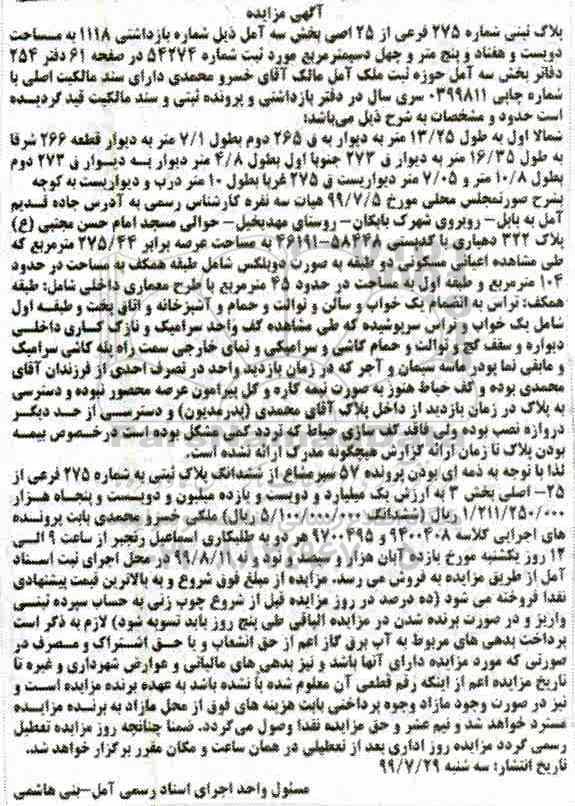 آگهی مزایده
پلاک ثبتی شماره ۲۷۵ فرعی از ۲۵ اصلی بخش سه آمل ذیل شماره بازداشتی ۱۱۱۸ به مساحت
دویست و هفتاد و پنج متر و چهل دسیمترمربع مورد ثبت شماره ۵۴۲۷۴ در صفحه ۶۱ دفتر ۲۵۴
دفاتر بخش سه آمل حوزه ثبت ملک آمل مالک آقای خسرو محمدی دارای سند مالکیت اصلی با
شماره چاپی ۰۳۹۹۸۱۱ سری سال در دفتر بازداشتی و پرونده ثبتی و سند مالکیت قید گردیده
است حدود و مشخصات به شرح ذیل می‌باشد:
شمالا اول به طول ۱۳/۲۵ متر به دیوار به ق ۲۶۵ دوم بطول ۷/۱ متر به دیوار قطعه ۲۶۶ شرقا
به طول ۱۶/۳۵ متر به دیوار ق ۲۷۳ جنوبا اول بطول ۴/۸ متر دیوار به دیوار ق ۲۷۳ دوم
بطول ۱۰/۸ متر و ۷/۰۵ متر دیواریست ق ۲۷۵ غربا بطول ۱۰ متر درب و دیواریست به کوچه
بشرح صورتمجلس محلی مورخ ۹۹/۷/۵ هیات سه نفره کارشناس رسمی به آدرس جاده قدیم
آمل به بابل- روبروی شهرک بابکان- روستای مهدیخیل- حوالی مسجد امام حسن مجتبی (ع)
پلاک ۳۲۲ دهیاری با کدپستی ۵۸۴۴۸-۴۶۱۹۱ به مساحت عرصه برابر ۲۷۵/۴۴ مترمربع که
طی مشاهده اعیانی مسکونی دو طبقه به صورت دوبلکس شامل طبقه همکف به مساحت در حدود
۱۰۴ مترمربع و طبقه اول به مساحت در حدود ۴۵ مترمربع با طرح معماری داخلی شامل: طبقه
همکف: تراس به انضمام یک خواب و سالن و توالت و حمام و آشپزخانه و اتاق پخت و طبقه اول
شامل یک خواب و تراس سرپوشیده که طی مشاهده کف واحد سرامیک و نازک کاری داخلی
دیواره و سقف گچ و توالت و حمام کاشی و سرامیکی و نمای خارجی سمت راه پله کاشی سرامیک
و مابقی نما پودر ماسه سیمان و آجر که در زمان بازدید واحد در تصرف احدی از فرزندان آقای
محمدی بوده و کف حیاط هنوز به صورت نیمه کاره و کل پیرامون عرصه محصور نبوده و دسترسی
به پلاک در زمان بازدید از داخل پلاک آقای محمدی (پدرمدیون) و دسترسی از حد دیگر
دروازه نصب بوده ولی فاقد کف سازی حیاط که تردد کمی مشکل بوده است درخصوص بیمه
بودن پلاک تا زمان ارائه گزارش هیچگونه مدرک ارائه نشده است.
لذا با توجه به ذمه ای بودن پرونده ۵۷ سیرمشاع از ششدانگ پلاک ثبتی به شماره ۲۷۵ فرعی از
۲۵- اصلی بخش ۳ به ارزش یک میلیارد و دویست و یازده میلیون و دویست و پنجاه هزار
۱/۲۱۱/۲۵۰/۰۰۰ ریال (ششدانگ ۵/۱۰۰/۰۰۰/۰۰۰ ریال) ملکی خسرو محمدی بابت پرونده
های اجرایی کلاسه ۹۴۰۰۴۰۸ و ۹۷۰۰۴۹۵ هر دو به طلبکاری اسماعیل رنجبر از ساعت ۹ الی
۱۲ روز یکشنبه مورخ یازده آبان هزار و سیصد و نود و نه ۹۹/۸/۱۱ در محل اجرای ثبت اسناد
آمل از طریق مزایده به فروش می رسد. مزایده از مبلغ فوق شروع و به بالاترین قیمت پیشنهادی
نقدا فروخته می شود (ده درصد در روز مزایده قبل از شروع چوب زنی به حساب سپرده ثبتی
واریز و در صورت برنده شدن در مزایده الباقی طی پنج روز باید تسویه شود) لازم به ذکر است
پرداخت بدهی های مربوط به آب برق گاز اعم از حق انشعاب و یا حق اشتراک و مصرف در
صورتی که مورد مزایده دارای آنها باشد و نیز بدهی های مالیاتی و عوارض شهرداری و غیره تا
تاریخ مزایده اعم از اینکه رقم قطعی آن معلوم شده یا نشده باشد به عهده برنده مزایده است و
نیز در صورت وجود مازاد وجوه پرداختی بابت هزینه های فوق از محل مازاد به برنده مزایده
مسترد خواهد شد و نیم عشر و حق مزایده نقدا وصول می‌گردد. ضمنا چنانچه روز مزایده تعطیل
رسمی گردد مزایده روز اداری بعد از تعطیلی در همان ساعت و مکان مقرر برگزار خواهد شد.
تاریخ انتشار: سه شنبه ۹۹/۷/۲۹
مسئول واحد اجرای اسناد رسمی آمل-بنی هاشمی